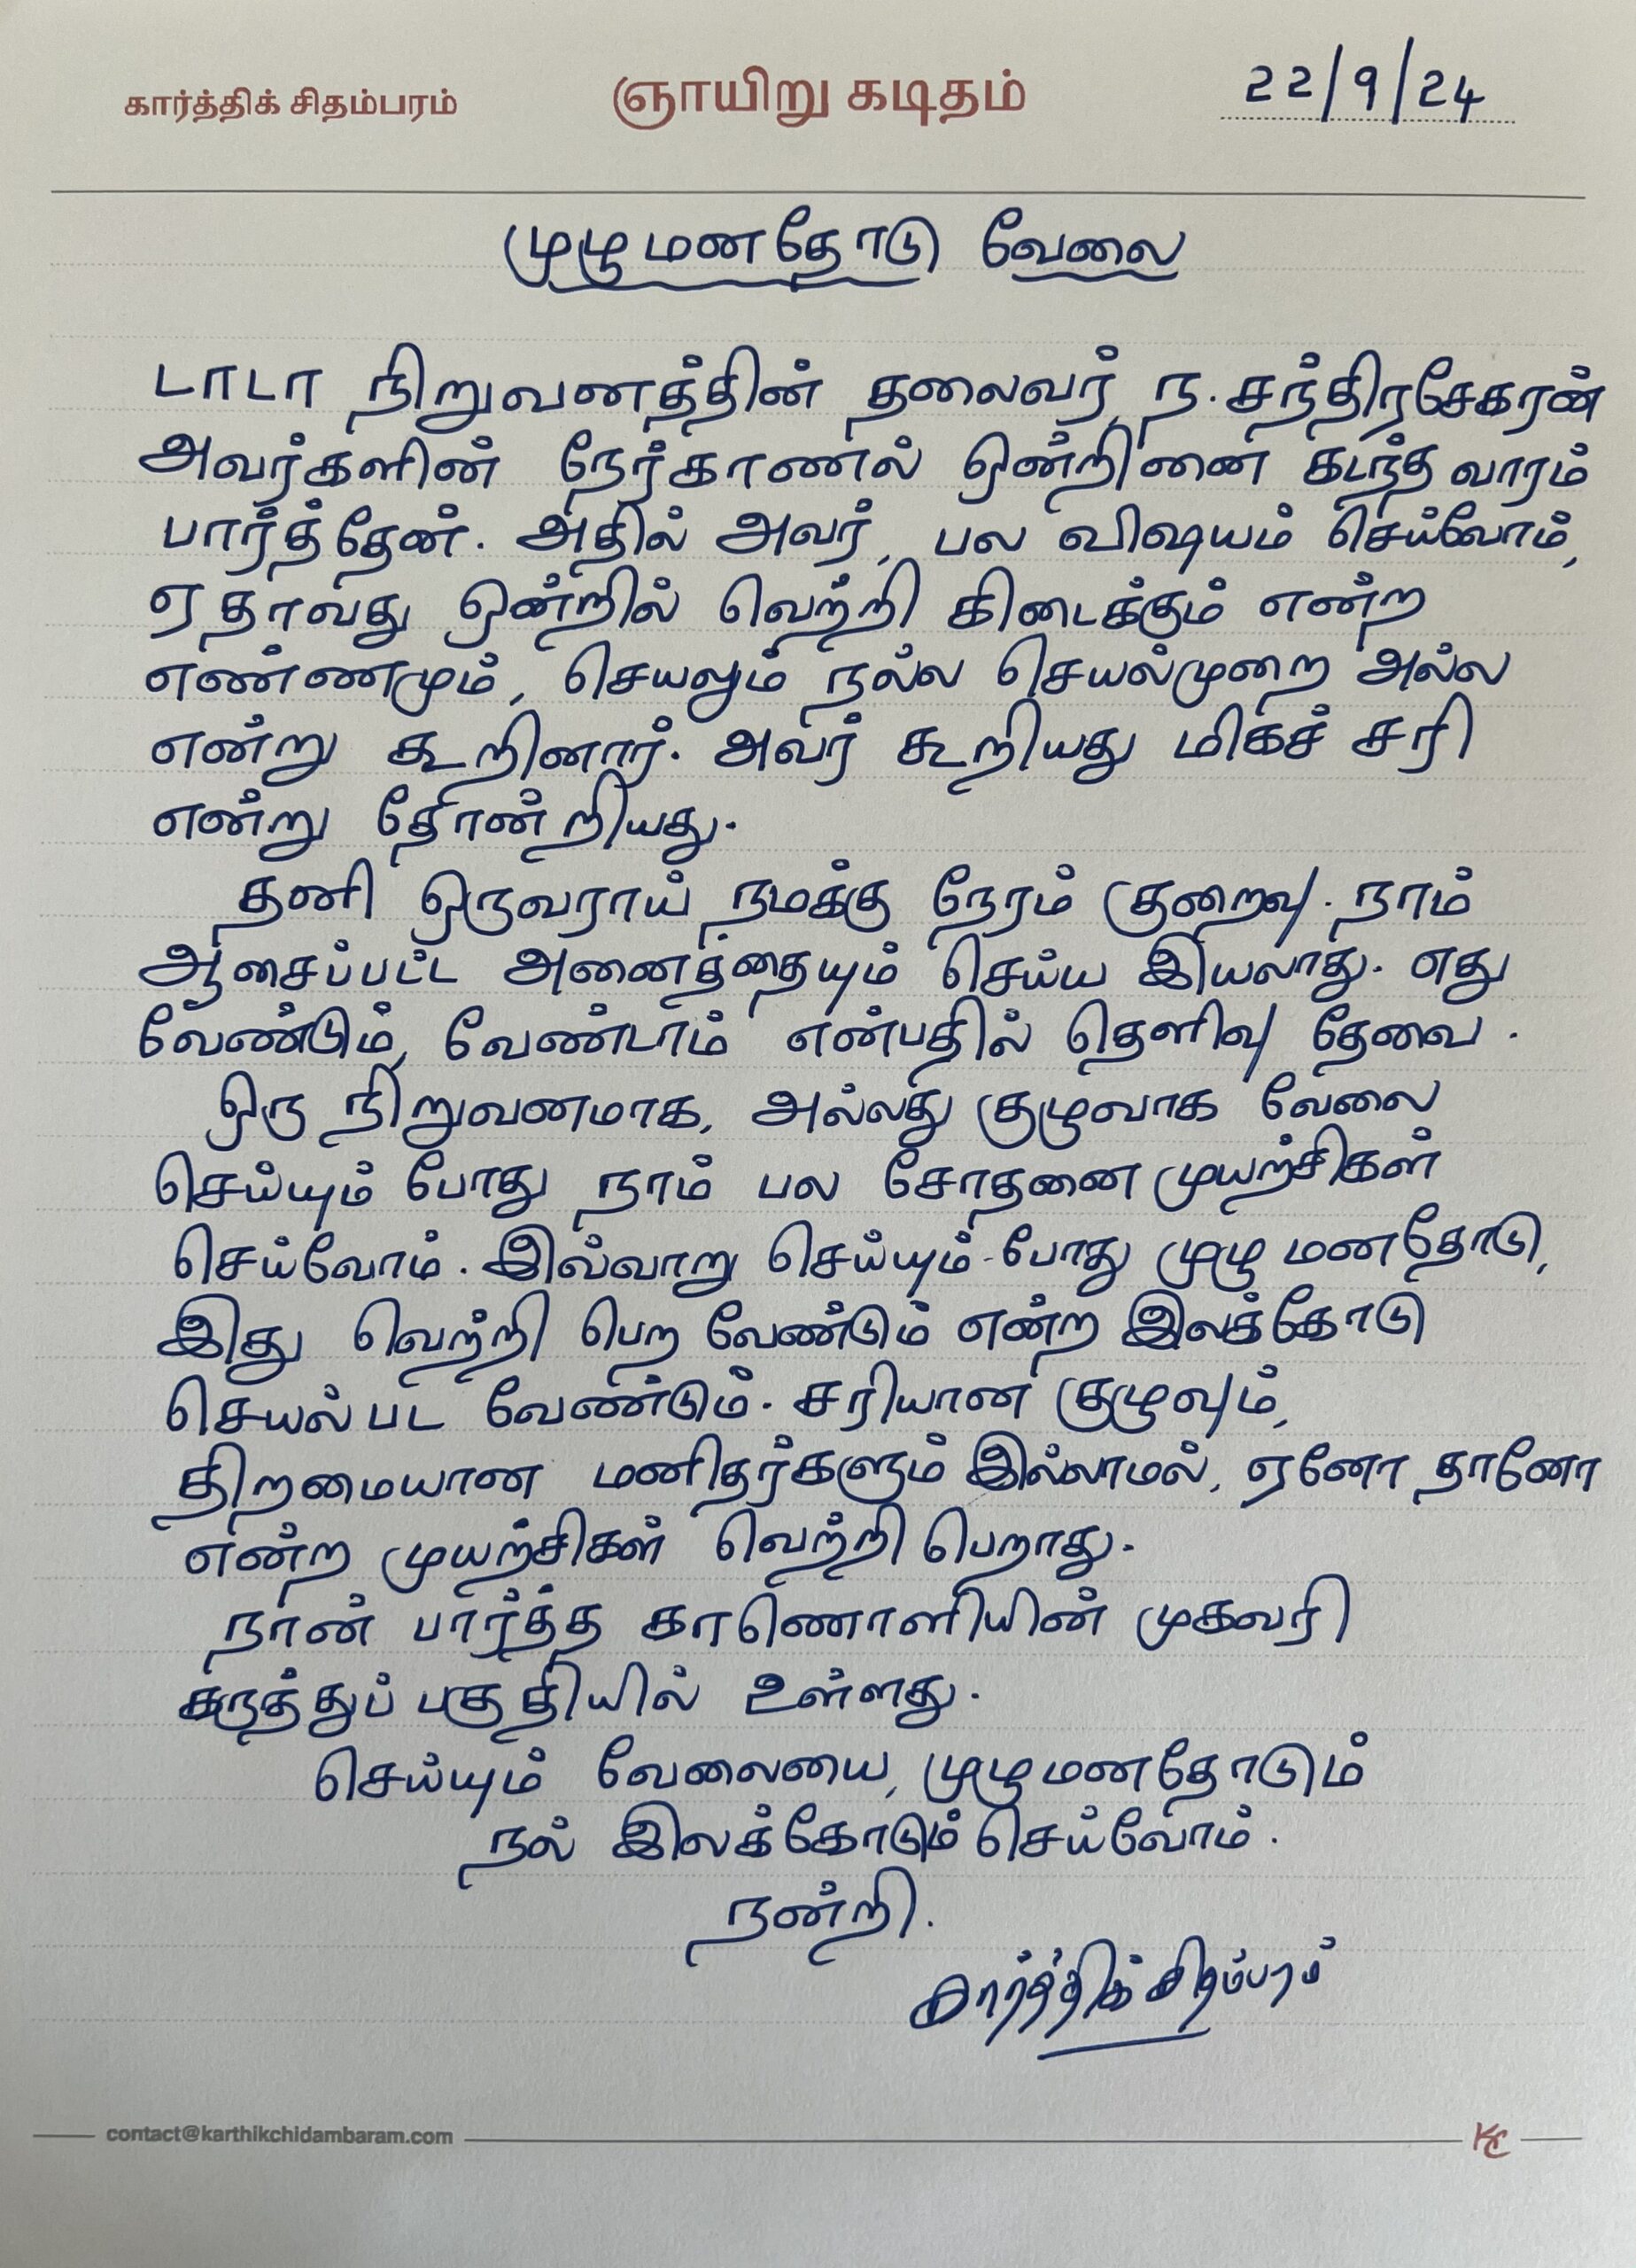 கார்த்திக் சிதம்பரம்
ஞாயிறு கடிதம்
22/9/24
முழு மனதோடு வேலை
டாடா நிறுவனத்தின் தலைவர், ந. சந்திரசேகரன்
அவர்களின் நேர்காணல் ஒன்றினை கடந்த வாரம்
பார்த்தேன். அதில் அவர், பல விஷயம் செய்வோம்,
ஏதாவது ஒன்றில் வெற்றி கிடைக்கும் என்ற
எண்ணமும், செயலும் நல்ல செயல்முறை அல்ல
என்று கூறினார். அவர் கூறியது மிகச் சரி
என்று தோன்றியது.
தனி ஒருவராய் நமக்கு நேரம் குறைவு. நாம்
ஆசைப்பட்ட அனைத்தையும் செய்ய இயலாது. எது
வேண்டும், வேண்டாம் என்பதில் தெளிவு தேவை.
ஒரு நிறுவனமாக, அல்லது குழுவாக வேலை
செய்யும் போது நாம் பல சோதனை முயற்சிகள்
செய்வோம். இவ்வாறு செய்யும் போது முழு மனதோடு,
இது வெற்றி பெற வேண்டும் என்ற இலக்கோடு
செயல்பட வேண்டும். சரியான குழுவும்,
திறமையான மனிதர்களும் இல்லாமல், ஏனோ தானோ
என்ற முயற்சிகள் வெற்றி பெறாது.
நான் பார்த்த காணொளியின் முகவரி
கருத்துப் பகுதியில் உள்ளது.
செய்யும் வேலையை, முழு மனதோடும்
நல் இலக்கோடும் செய்வோம்.
நன்றி.
கார்த்திக் சிதம்பரம்
contact@karthikchidambaram.com
KC